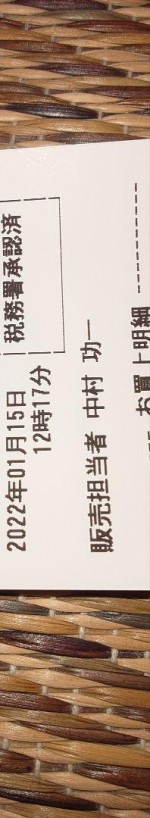 税務署承認済
2022年01月15日
12時17分
販売担当者 中村 功一
お買上明細